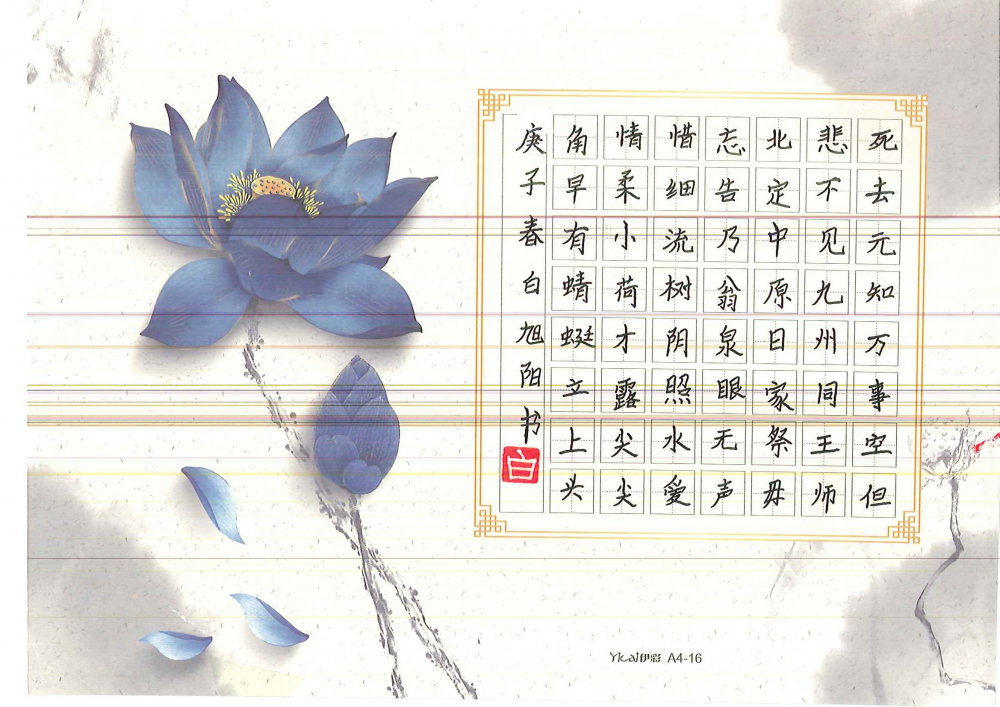 死去元知万事空但
悲不见九州同王师
北定中原日家祭毋
忘告乃翁泉眼无声
惜细流树阴照水爱
情柔小荷才露尖尖
角早有蜻蜓立上头
庚子春白旭阳书
白
Yicai伊彩 A4-16